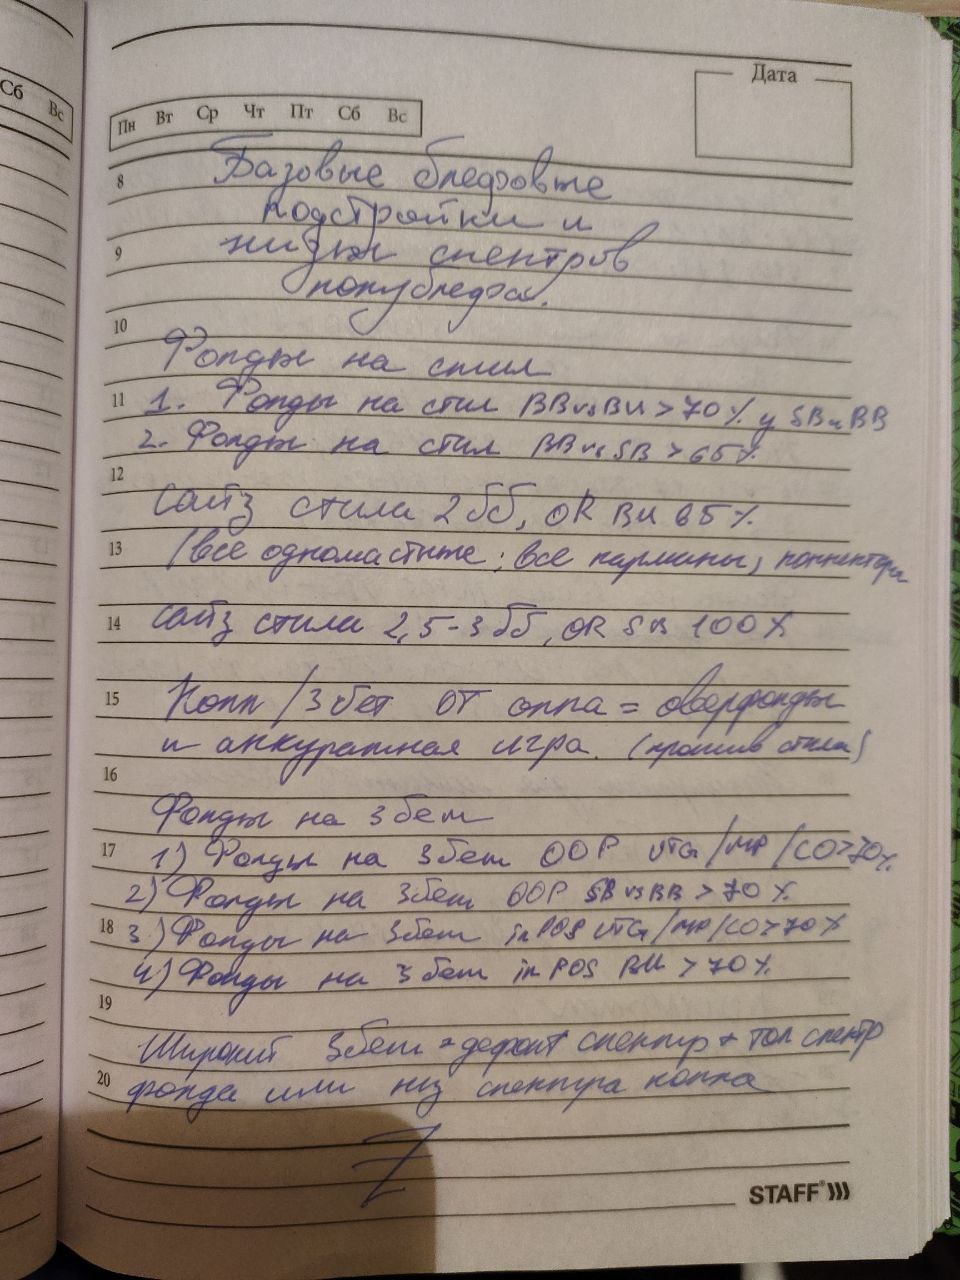 Сб
Вс
Дата
Пн Вт Ср Чт Пт Сб Вс
8
Базовые блефовые
подстройки и
9
низы спектров
полублефа.
10
Фолды на стил
11
1. Фолды на стил BBvsBU > 70% у SB и BB
2. Фолды на стил BB vs SB > 65%
12
Сайз стила 2 бб, OR BU 65%
13
(все одномастные; все карманы, коннекторы
14
Сайз стила 2,5-3 бб, OR SB 100%
15
Колл/3бет от оппа = оверфолды
и аккуратная игра. (против стила)
16
Фолды на 3бет
17
1) Фолды на 3бет OOP UTG/MP/CO>70%.
2) Фолды на 3бет OOP SB vs BB > 70%.
18
3) Фолды на 3бет in POS UTG/MP/CO>70%
4) Фолды на 3бет in POS BU > 70%.
19
Широкий 3бет = дефолт спектр + топ спектр
20
фолда или низ спектра колла
Z
STAFF®